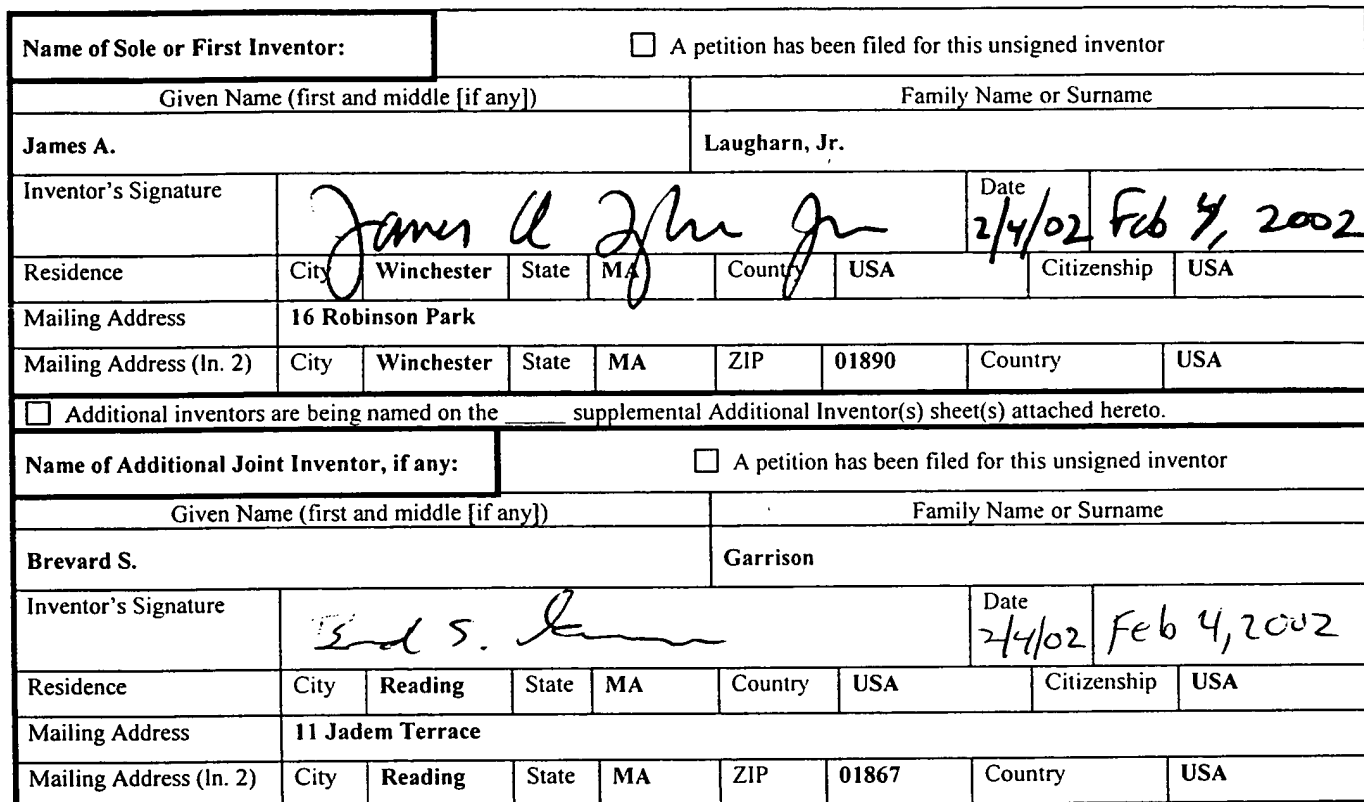 Name of Sole or First Inventor: A petition has been filed for this unsigned inventor
Given Name (first and middle [if any]) Family Name or Surname
James A. Laugharn, Jr.
Inventor's Signature James A Jr Date 2/4/02 Feb 4, 2002
Residence City Winchester State MA Country USA Citizenship USA
Mailing Address 16 Robinson Park
Mailing Address (ln. 2) City Winchester State MA ZIP 01890 Country USA
Additional inventors are being named on the _____ supplemental Additional Inventor(s) sheet(s) attached hereto.
Name of Additional Joint Inventor, if any: A petition has been filed for this unsigned inventor
Given Name (first and middle [if any]) Family Name or Surname
Brevard S. Garrison
Inventor's Signature S. Date 2/4/02 Feb 4, 2002
Residence City Reading State MA Country USA Citizenship USA
Mailing Address 11 Jadem Terrace
Mailing Address (ln. 2) City Reading State MA ZIP 01867 Country USA